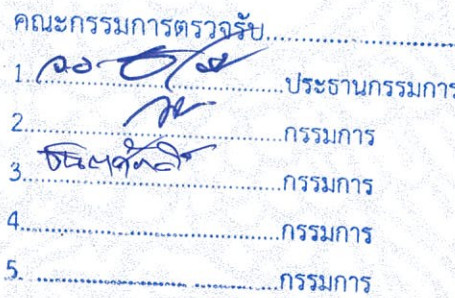 คณะกรรมการตรวจรับ..............................
1..............................ประธานกรรมการ
2..............................กรรมการ
3..............................กรรมการ
4..............................กรรมการ
5. ..............................กรรมการ